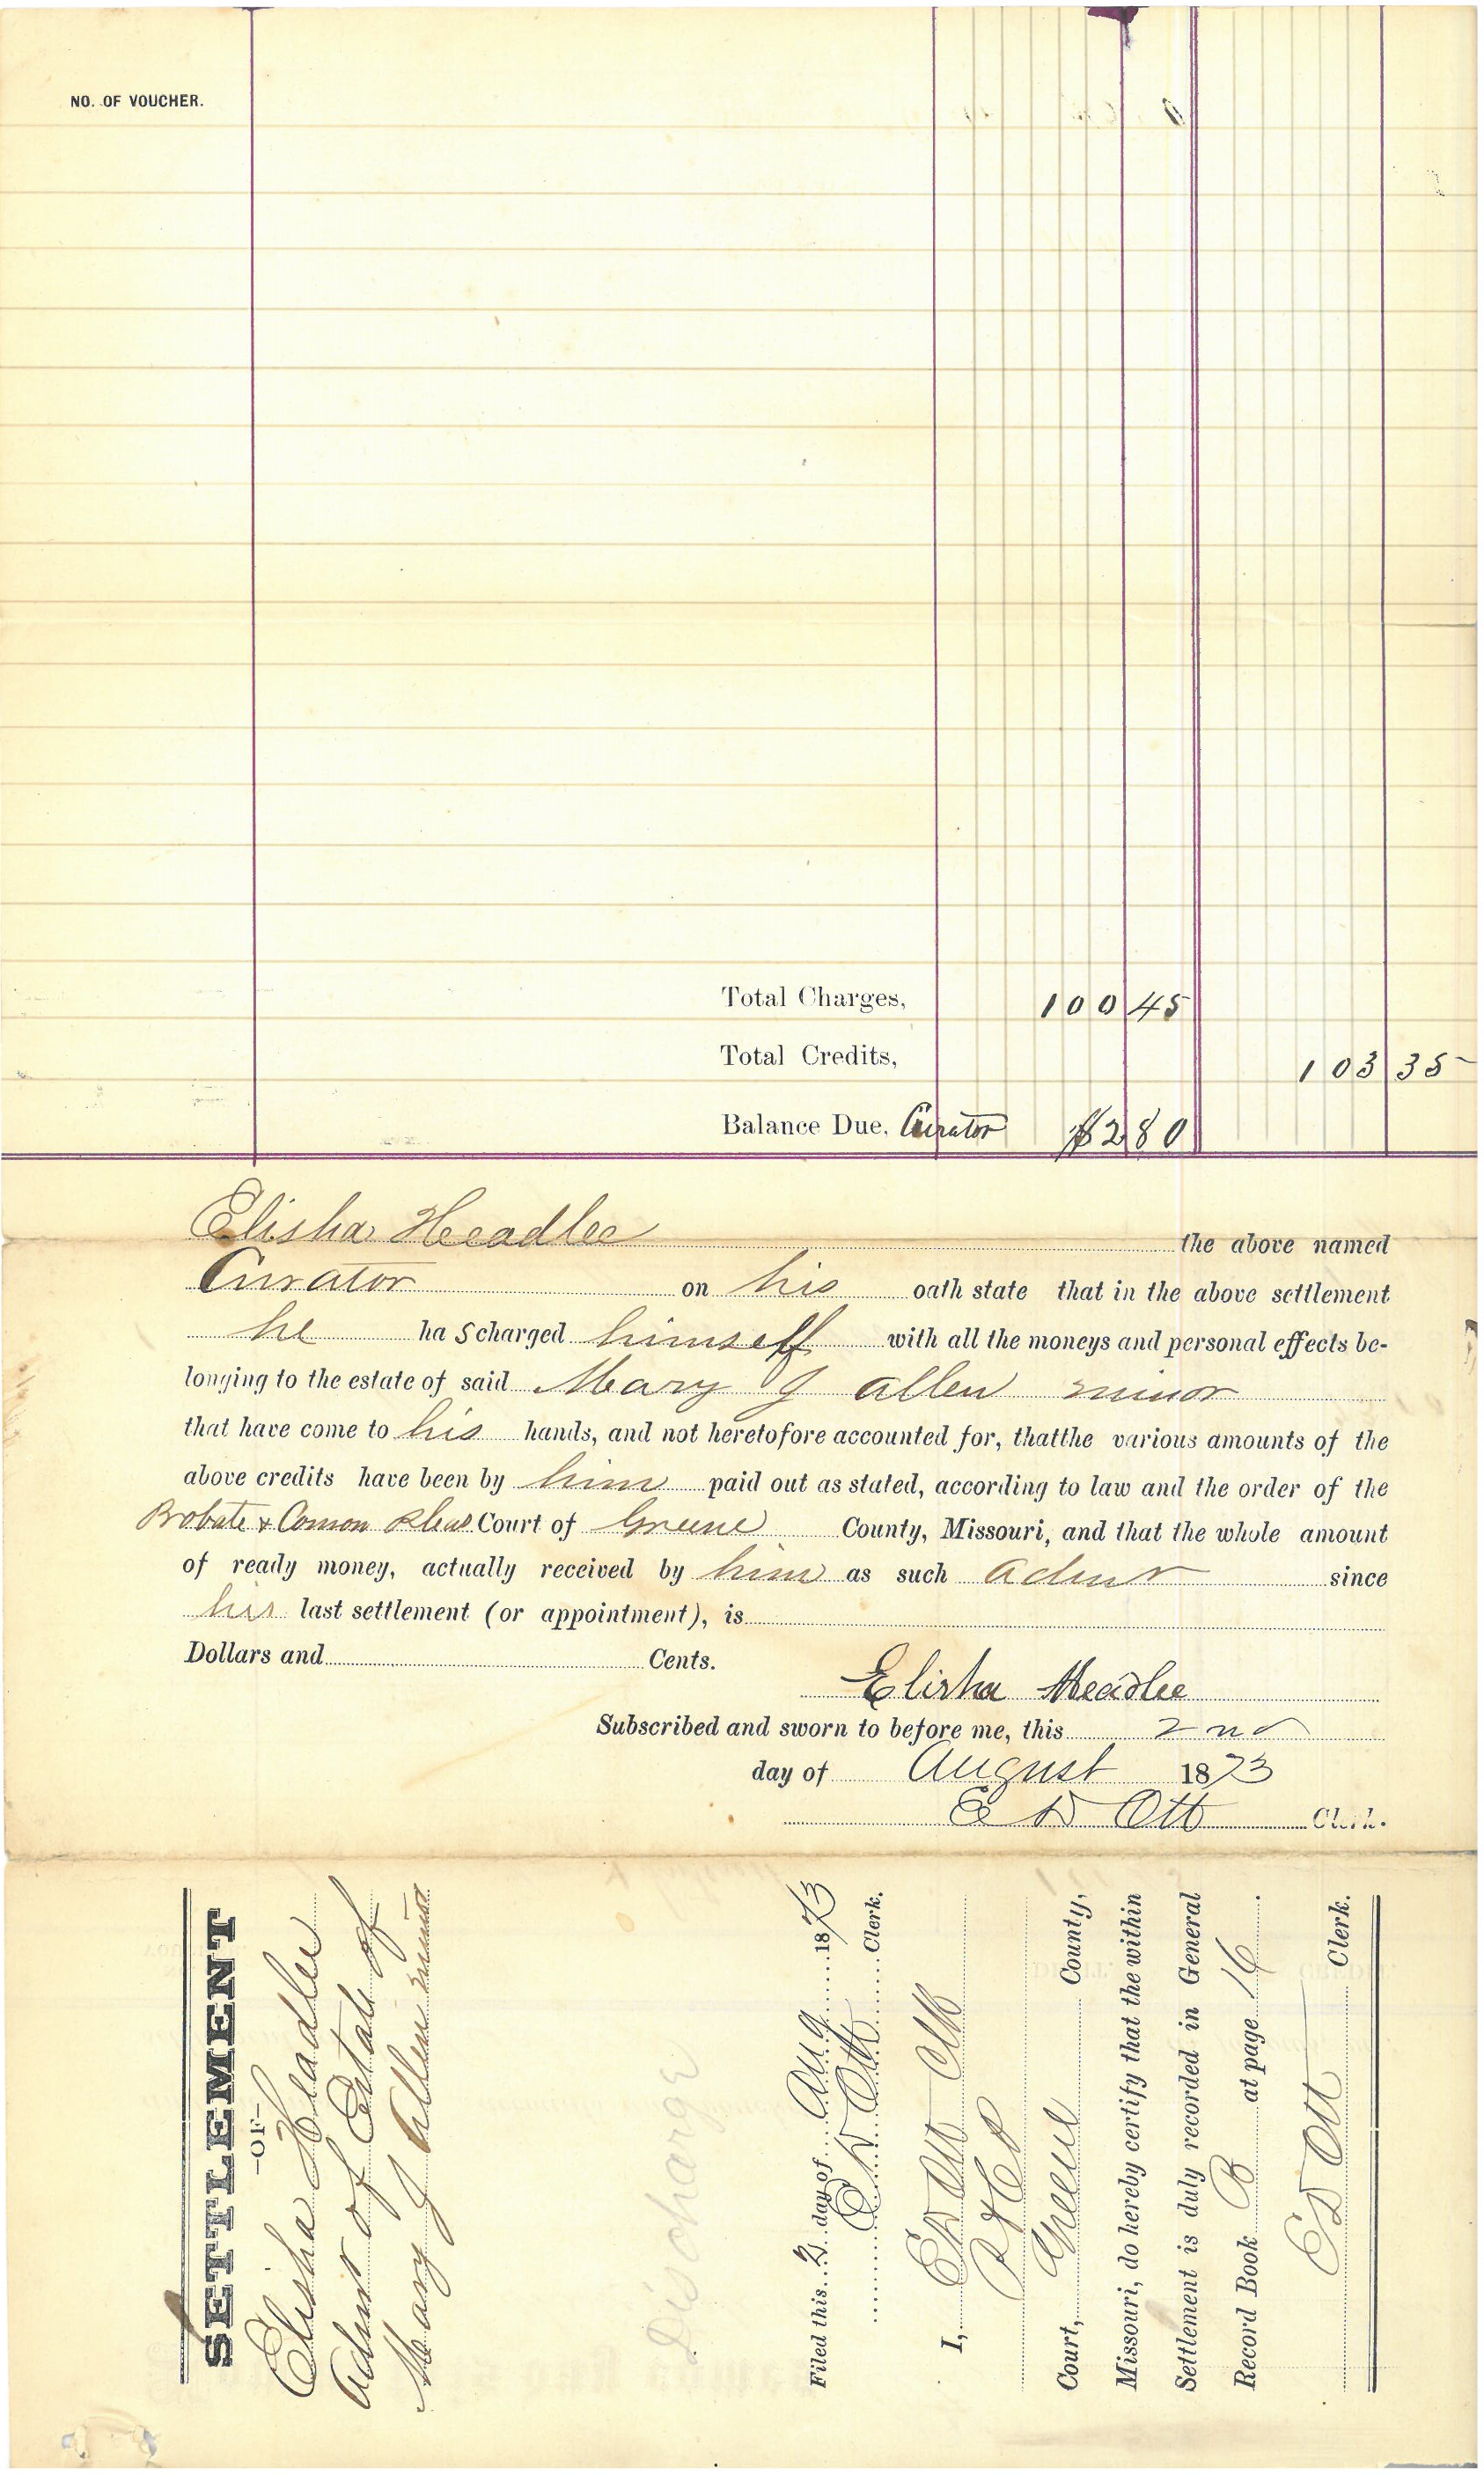 NO. OF VOUCHER.
Total Charges, 100 45
Total Credits, 103 35
Balance Due, Curator $2 80
Elisha Headlee the above named
Curator on his oath state that in the above settlement
he ha s charged himself with all the moneys and personal effects be-
longing to the estate of said Mary J Allen minor
that have come to his hands, and not heretofore accounted for, thatthe various amounts of the
above credits have been by him paid out as stated, according to law and the order of the
Probate & Comon Pleas Court of Greene County, Missouri, and that the whole amount
of ready money, actually received by him as such admr since
his last settlement (or appointment), is
Dollars and Cents.
Elisha Headlee
Subscribed and sworn to before me, this 2nd
day of August 1873
E D Ott Clerk.
SETTLEMENT
-OF-
Elisha Headlee
Admr of Estate of
Mary J Allen minor
Discharge
Filed this 2 day of Aug 1873
E D Ott Clerk.
I, E D Ott Clk
P & C P
Court, Greene County,
Missouri, do hereby certify that the within
Settlement is duly recorded in General
Record Book B at page 16.
E D Ott Clerk.